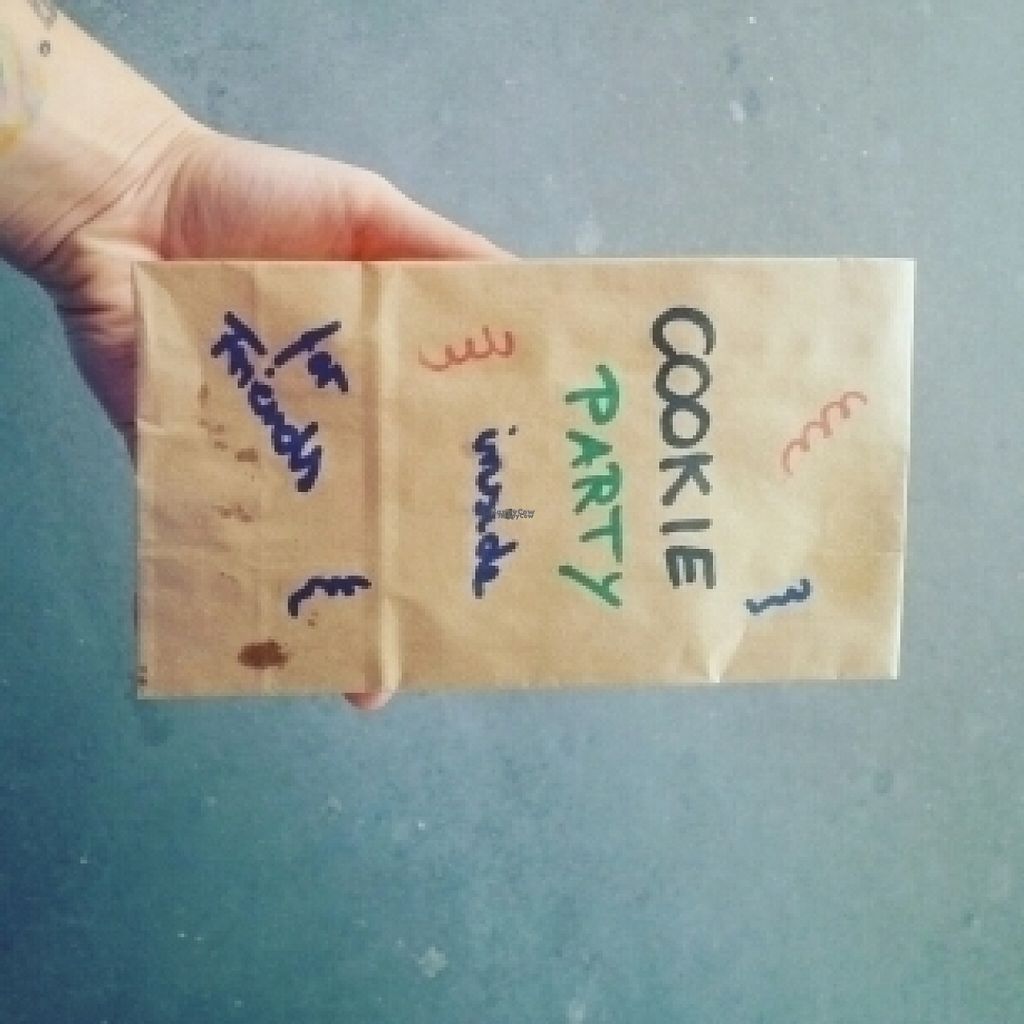 COOKIE
PARTY
inside
for
friends
HappyCow